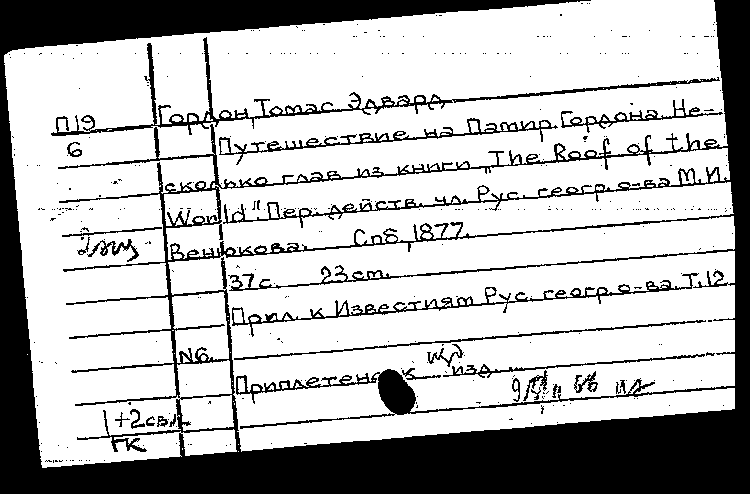 П19 Гордон, Томас Эдвард
6 Путешествие на Памир Гордона. Не-
сколько глав из книги „The Roof of the
World". Пер. действ. чл. Рус. геогр. о-ва М.И.
2 экз Венюкова. Спб, 1877.
37 с. 23 cm.
Прил. к Известиям Рус. геогр. о-ва. Т. 12
N6.
Приплетено к изд.
1+2св.к.
ГК